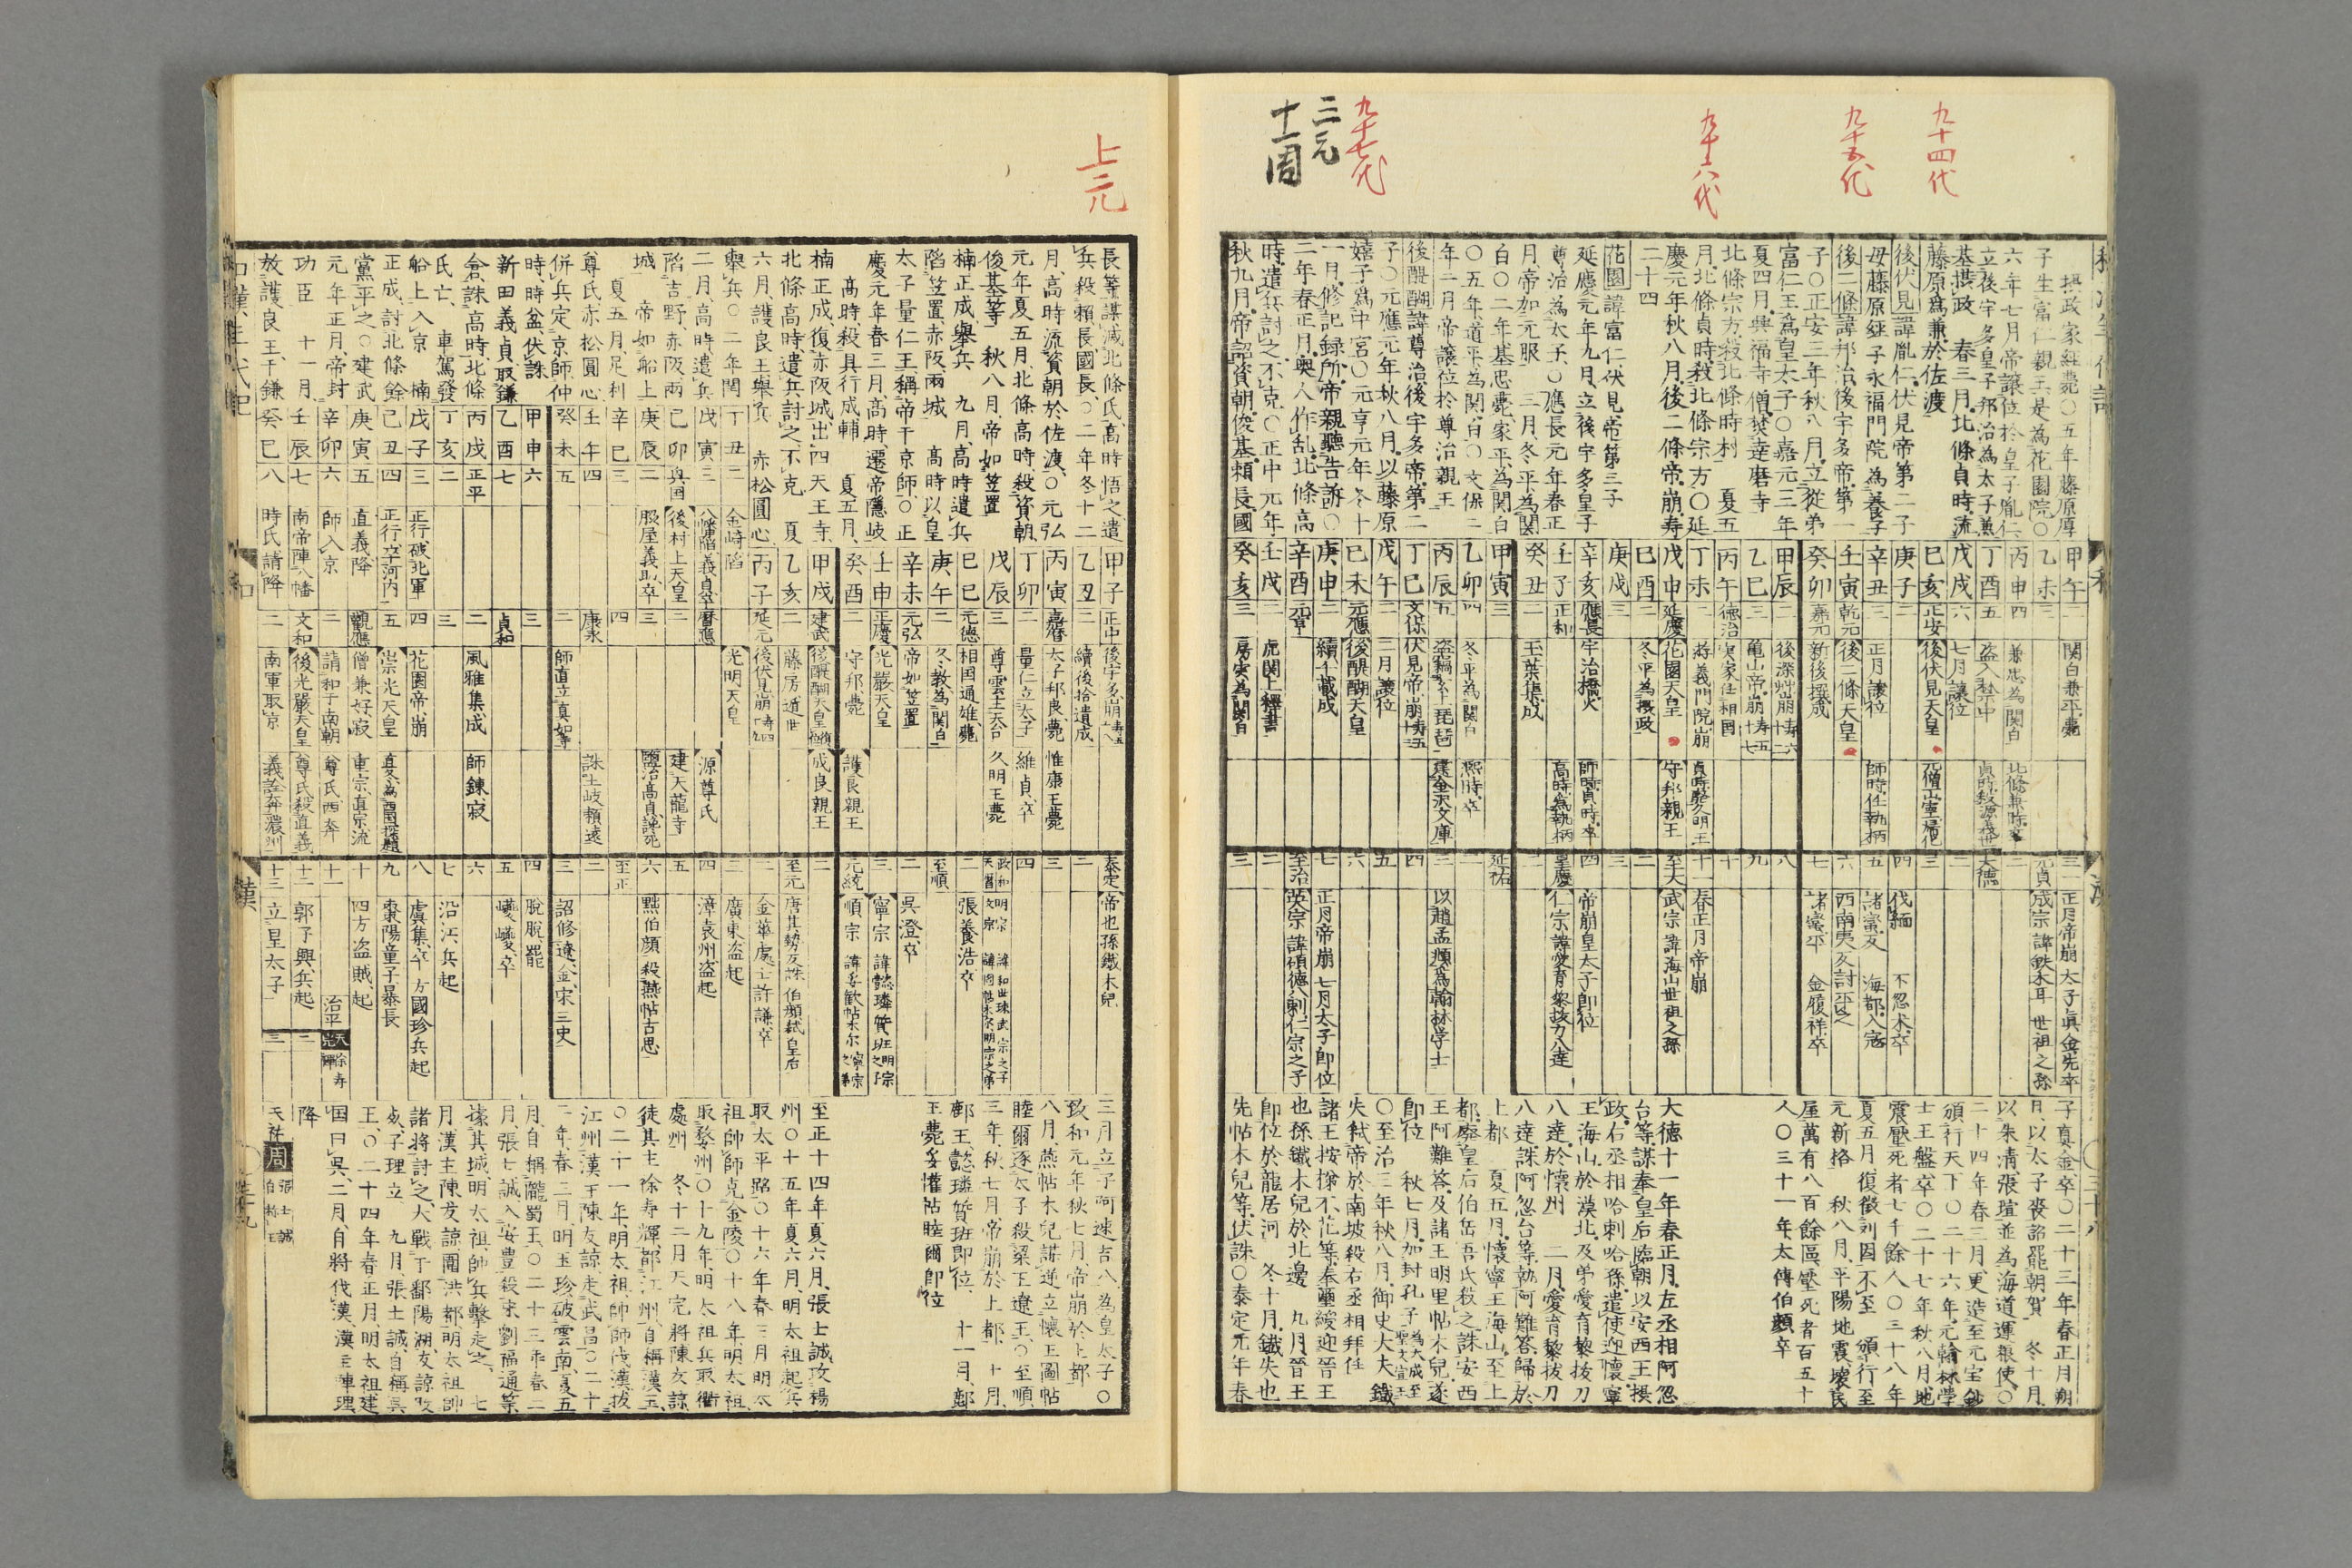 九十四代
九十五代
九十六代
九十七代
三元
十一周
摂政家経薨〇五年藤原厚
子生富仁親王是為花園院〇
六年七月帝譲位於皇子胤仁
立後宇多皇子邦治為太子兼
基摂政 春三月北條貞時流
藤原為兼於佐渡
後伏見諱胤仁伏見帝第二子
母藤原経子永福門院為養子
後二條諱邦治後宇多帝第一
子〇正安三年秋八月立從弟
富仁王為皇太子〇嘉元三年
夏四月興福寺僧焚達磨寺
北條宗方殺北條時村 夏五
月北條貞時殺北條宗方〇延
慶元年秋八月後二條帝崩寿
二十四
花園諱富仁伏見帝第三子
延慶元年九月立後宇多皇子
尊治為太子〇應長元年春正
月帝加元服 三月冬平為関
白〇二年基忠薨家平為関白
〇五年道平為関白〇文保二
年二月帝譲位於尊治親王
後醍醐諱尊治後宇多帝第二
子〇元應元年秋八月以藤原
嬉子為中宮〇元亨元年冬十
一月修記録所帝親聽告訴〇
二年春正月奥人作乱北條高
時遣兵討之不克〇正中元年
秋九月帝詔資朝俊基頼長國
甲午 二 関白兼平薨 三一 正月帝崩太子真金先卒
乙未 三 元貞 成宗諱鉄木耳世祖之孫
丙申 四 兼忠為関白 北條兼時卒 二
丁酉 五 盗入禁中 貞時殺源義世 大德
戊戌 六 七月譲位 二
己亥 正安 後伏見天皇 元僧一山寧帰化 三
庚子 二 四 伐緬 不忽木卒
辛丑 三 正月譲位 師時任執柄 五 諸蛮反 海都入寇
壬寅 乾元 後二條天皇 六 西南夷反討平之
癸卯 嘉元 新後撰成 七 諸蛮平 金履祥卒
甲辰 二 後深艸崩寿六十二 八
乙巳 三 亀山帝崩寿五十七 九
丙午 德治 実家任相国 十
丁未 二 游義門院崩 貞時廃久明王 十一 春正月帝崩
戊申 延慶 花園天皇 守邦親王 至大 武宗諱海山世祖之孫
己酉 二 冬平為摂政 二
庚戌 三 三
辛亥 應長 宇治橋火 師時貞時卒 四 帝崩皇太子即位
壬子 正和 高時為執柄 皇慶 仁宗諱愛育黎拔力八達
癸丑 二 玉葉集成 二
甲寅 三 延祐
乙卯 四 冬平為関白 煕時卒 二
丙辰 五 盗竊玄上琵琶 建金沢文庫 三 以趙孟頫為翰林学士
丁巳 文保 伏見帝崩寿五三 四
戊午 二 二月譲位 五
己未 元應 後醍醐天皇 六
庚申 二 続千載成 七 正月帝崩七月太子即位
辛酉 元亨 至治 英宗諱碩德八剌仁宗之子
壬戌 二 虎関上釋書 二
癸亥 三 房実為関白 三
子真金卒〇二十三年春正月朔
日以太子喪詔罷朝賀 冬十月
以朱清張瑄並為海道運粮使〇
二十四年春三月更造至元宝鈔
頒行天下〇二十六年元翰林学
士王盤卒〇二十七年秋八月地
震壓死者七千餘人〇三十八年
夏五月復徵刘因不至 頒行至
元新格 秋八月平陽地震壞民
屋萬有八百餘區壓死者百五十
人〇三十一年太傅伯顔卒
大德十一年春正月左丞相阿忽
台等謀奉皇后臨朝以安西王摂
政右丞相哈剌哈孫遣使迎懐寧
王海山於漠北及弟愛育黎拔刀
八達於懐州 二月愛育黎拔刀
八達誅阿忽台等執阿難答歸於
上都 夏五月懐寧王海山至上
都廃皇后伯岳吾氏殺之誅安西
王阿難荅及諸王明里帖木兒遂
即位 秋七月加封孔子為大成至聖文宣王
〇至治三年秋八月御史大夫鐵
失弑帝於南坡殺右丞相拜住
諸王按梯不花等奉璽綬迎晉王
也孫鐵木兒於北邊 九月晉王
即位於龍居河 冬十月鐵失也
先帖木兒等伏誅〇泰定元年春
上元
長等謀滅北條氏高時悟之遣
兵殺頼長國長〇二年冬十二
月高時流資朝於佐渡〇元弘
元年夏五月北條高時殺資朝
俊基等 秋八月帝如笠置
楠正成舉兵 九月高時遣兵
陷笠置赤阪兩城 高時以皇
太子量仁王稱帝于京師〇正
慶元年春三月高時遷帝隱岐
高時殺具行成輔 夏五月
楠正成復赤阪城出四天王寺
北條高時遣兵討之不克 夏
六月護良王舉兵 赤松圓心
舉兵〇二年閏
二月高時遣兵
陷吉野赤阪兩
城 帝如船上
夏五月足利
尊氏赤松圓心
併兵定京師仲
時時益伏誅
新田義貞取鎌
倉誅高時北條
氏亡 車駕發
船上入京 楠
正成討北條餘
黨平之〇建武
元年正月帝封
功臣 十一月
放護良王于鎌
甲子 正中 後宇多崩 泰定 帝也孫鐵木兒
乙丑 二 続後拾遺成 二
丙寅 嘉暦 太子邦良薨 惟康王薨 三
丁卯 二 量仁立太子 維貞卒 四
戊辰 三 尊雲王天台 久明王薨 致和 天暦 明宗 文宗
己巳 元徳 相国通雄薨 二 張養浩卒
庚午 二 冬教為関白 至順
辛未 元弘 帝如笠置 二 呉澄卒
壬申 正慶 光厳天皇 三 寧宗 諱懿璘質班明宗之子
癸酉 二 守邦薨 護良親王 元統 順宗 諱妥歓帖木尔寧宗之弟
甲戌 建武 後醍醐天皇 成良親王 二
乙亥 二 藤房遁世 至元 唐其勢反誅 伯顔弑皇后
丙子 延元 後伏見崩 二 金華處士許謙卒
丁丑 二 金崎陷 光明天皇 三 廣東盗起
戊寅 三 八幡陷義貞卒 暦應 源尊氏 四 漳袁州盗起
己卯 興国 後村上天皇 二 建天龍寺 五
庚辰 二 脇屋義助卒 三 塩冶高貞讒死 六 黜伯顔殺燕帖古思
辛巳 三 四 至正
壬午 四 康永 誅土岐頼遠 二
癸未 五 二 師直立真如寺 三 詔修遼金宋三史
甲申 六 三 四 脱脱罷
乙酉 七 貞和 五 巙巙卒
丙戌 正平 二 風雅集成 師錬寂 六
丁亥 二 三 七 沿江兵起
戊子 三 正行破北軍 四 花園帝崩 八 虞集卒 方國珍兵起
己丑 四 正行卒河内 五 崇光天皇 九 棗陽童子暴長
庚寅 五 直義降 觀應 僧兼好寂 重宗直宗流 十 四方盗賊起
辛卯 六 師入京 二 請和于南朝 尊氏西奔 十一 治平 天完 徐寿輝
壬辰 七 南帝陣八幡 文和 後光嚴天皇 尊氏殺直義 十二 郭子興兵起 二
癸巳 八 時氏請降 二 南軍取京 義詮奔濃州 十三 立皇太子 三
三月立子阿速吉八為皇太子〇
致和元年秋七月帝崩於上都
八月燕帖木兒謀逆立懷王圖帖
睦爾逐太子殺梁王遼王〇至順
三年秋七月帝崩於上都 十月
鄜王懿璘質班即位 十一月鄜
王薨妥懽帖睦爾即位
至正十四年夏六月張士誠攻楊
州〇十五年夏六月明太祖起兵
取太平路〇十六年春三月明太
祖帥師克金陵〇十八年明太祖
取婺州〇十九年明太祖兵取衢
處州 冬十二月天完將陳友諒
徒其主徐寿輝都江州自稱漢王
〇二十一年明太祖帥師伐漢拔
江州漢王陳友諒走武昌〇二十
二年春三月明玉珍破雲南夏五
月自稱隴蜀王〇二十三年春二
月張士誠入安豊殺宋劉福通等
據其城明太祖帥兵擊走之 七
月漢主陳友諒圍洪都明太祖帥
諸將討之大戰于鄱陽湖友諒敗
死子理立 九月張士誠自稱呉
王〇二十四年春正月明太祖建
国曰呉二月自將伐漢漢主陳理
降
天祐 周 張士誠 伯称王
和漢年代記
和
漢